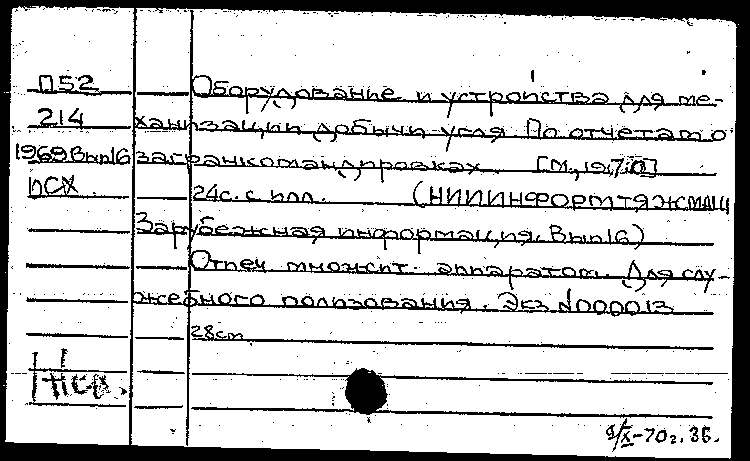 П52 Оборудование и устройства для ме-
214 ханизации добычи угля. По отчетам о
1969 Вып16 загранкомандировках. [М., 1970]
ПСХ 24с. с илл. (НИИИНФОРМТЯЖМАШ
Зарубежная информация. Вып16)
Отпеч. множит. аппаратом. Для слу-
жебного пользования. Экз. №000013
28см
9/X-70г. 3Б.